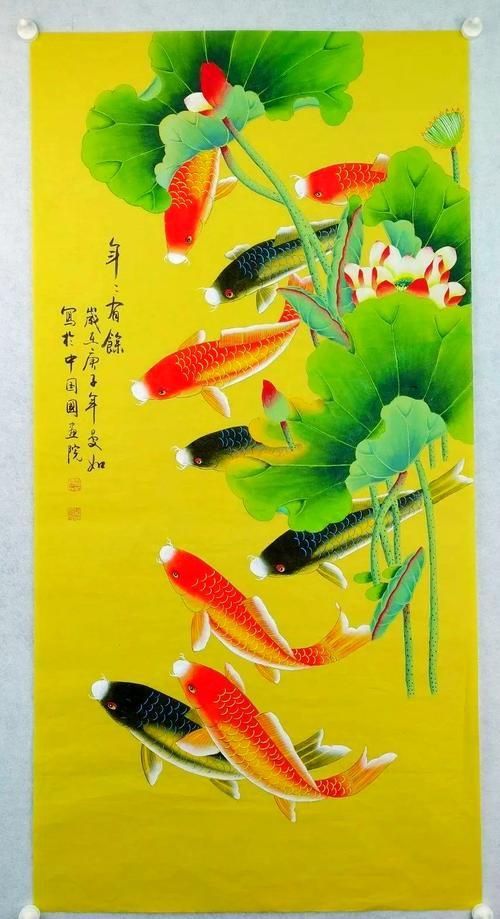 年〻有餘
歲在庚子年曼如
寫於中国國画院